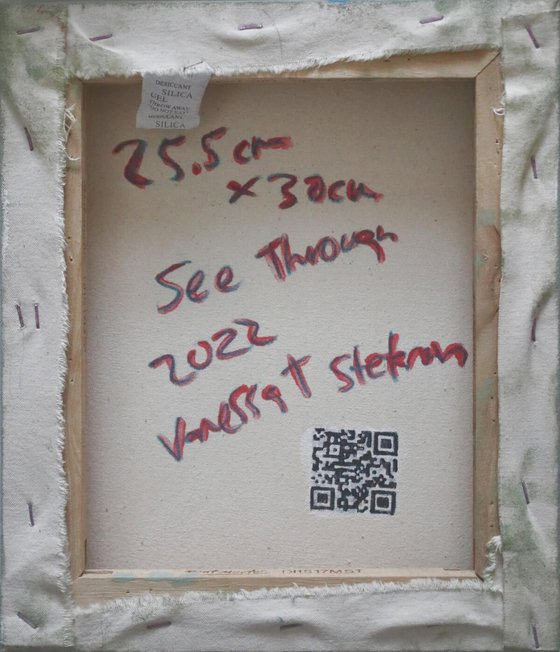 DESICCANT
SILICA
GEL
THROW AWAY
DO NOT EAT
DESICCANT
SILICA
25.5 cm
x 30cm
See Through
2022
Vanessa t Stefanova